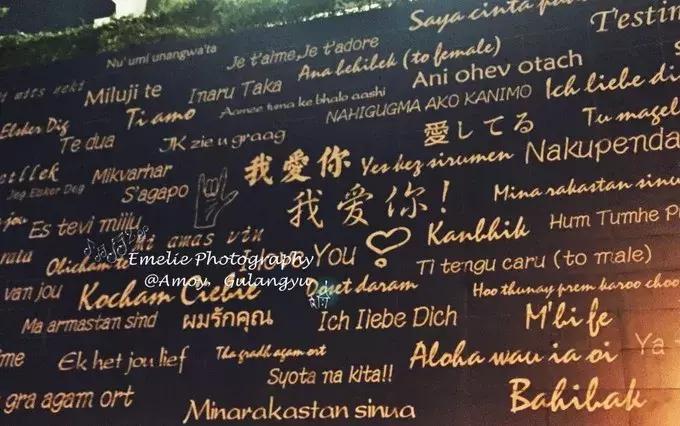 Saya cinta
T'estim
Nu' umi unangwa'ta
Je t'aime,Je t'adore
Ana behibek (to female)
Ani ohev otach
Ich liebe di
Miluji te
Inaru Taka
Aamee tuma ke bhalo aashi
NAHIGUGMA AKO KANIMO
Tu magel
Elsker Dig
Ti amo
Te dua
IK zie u graag
愛してる
Nakupenda
Mikvarhar
Jeg Elsker Deg
S'agapo
我愛你
Yes kez sirumen
Mina rakastan sinu
我爱你!
Es tevi milju
Kanbhik
Hum Tumhe P
te amas vin
I love You
Ti tengu caru (to male)
Obicham te
Emelie Photography
@Amoy, Gulangyu
van jou
Kocham Ciebie
Doset daram
Hoo thunay prem karoo choo
Ma armastan sind
ผมรักคุณ
Ich liebe Dich
M'bi fe
Ek het jou lief
Tha gradh agam ort
Aloha wau ia oi
Ya
Syota na kita!!
gra agam ort
Minarakastan sinua
Bahibak